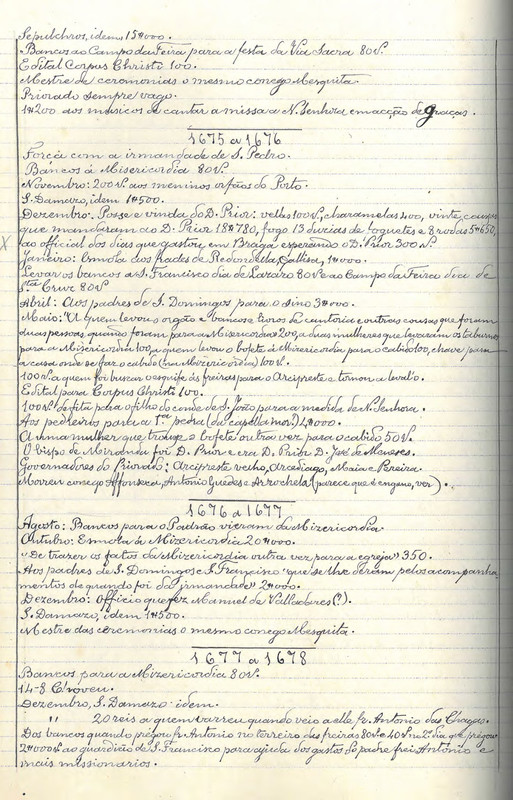 Sepulchros, idem 15#000.
Bancos ao Campo da Feira para a festa da Via Sacra 80 rs.
Edital Corpus Christi 100.
Mestre de ceremonias o mesmo conego Mesquita.
Priorado sempre vago.
1#200 aos musicos de cantar a missa a N. Senhora em acção de graças.
1675 a 1676
Força com a irmandade de S. Pedro.
Bancos á Misericordia 80 rs.
Novembro: 200 rs. aos meninos orfãos do Porto.
S. Damazo, idem 1#500.
Dezembro: Posse e vinda do D. Prior: vellas 100 rs, charamelas 400, vinte, caixas
que mandaram ao D. Prior 18#780, fogo 13 duzias de foguetes e 8 rodas 5#650,
ao official dos dias que gastou em Braga esperando o D. Prior 300 rs.
Janeiro: Esmola aos padres de Redondela, Galliza, 1#000.
Levar os bancos a S. Francisco dia de Lazaro 80 rs e ao Campo da Feira dia de
Sta Cruz 80 rs
Abril: Aos padres de S. Domingos para o sino 3#000.
Maio: "A quem levou o orgão e bancos e livros da cantoria e outras cousas que foram
duas pessoas, quando foram para a Misericordia 200, a duas mulheres que levaram os taburnos
para a Misericordia 100, a quem levou o bofete á Misericordia para o cabido 100, chave para
a casa onde se faz o cabido (na Misericordia) 100 rs.
100 rs. a quem foi buscar o esquife ás freiras para o Arcipreste e tornou a leval-o.
Edital para Corpus Christi 100.
100 rs. de fita para o filho do conde de S. João para a medida de N. Senhora.
Aos pedreiros para a 1.ª pedra (da capella mor) 2#000.
A uma mulher que trouxe o bofete outra vez para o cabido 50 rs.
O bispo de Miranda foi D. Prior e era D. Prior D. José de Menezes.
Governadores do Priorado: Arcipreste velho, Arcediago, Maia e Pereira.
Morreu conego Affonseca, Antonio Guedes e Arrochela (parece que é engano, ver).
1676 a 1677
Agosto: Bancos para o Padrão vieram da Mizericordia.
Outubro: Esmola á Mizericordia 20#000.
"De trazer os fatos da Mizericordia outra vez para a egreja" 350.
Aos padres de S. Domingos e S. Francisco "que se lhe deram pelos acompanha-
mentos de quando foi da irmandade" 2#000.
Dezembro: officio que fez Manuel de Valladares (?).
S. Damazo, idem 1#500.
Mestre das ceremonias o mesmo conego Mesquita.
1677 a 1678
Bancos para a Mizericordia 80 rs.
14-8 Choveu.
Dezembro, S. Damazo: idem.
" 20 reis a quem varreu quando veio a elle fr. Antonio das Chagas.
Dos bancos quando prégou fr. Antonio no terreiro das freiras 80 rs e 40 rs no 2.º dia que prégou
2#000 rs. ao guardião de S. Francisco para ajuda dos gastos do padre frei Antonio e
mais missionarios.